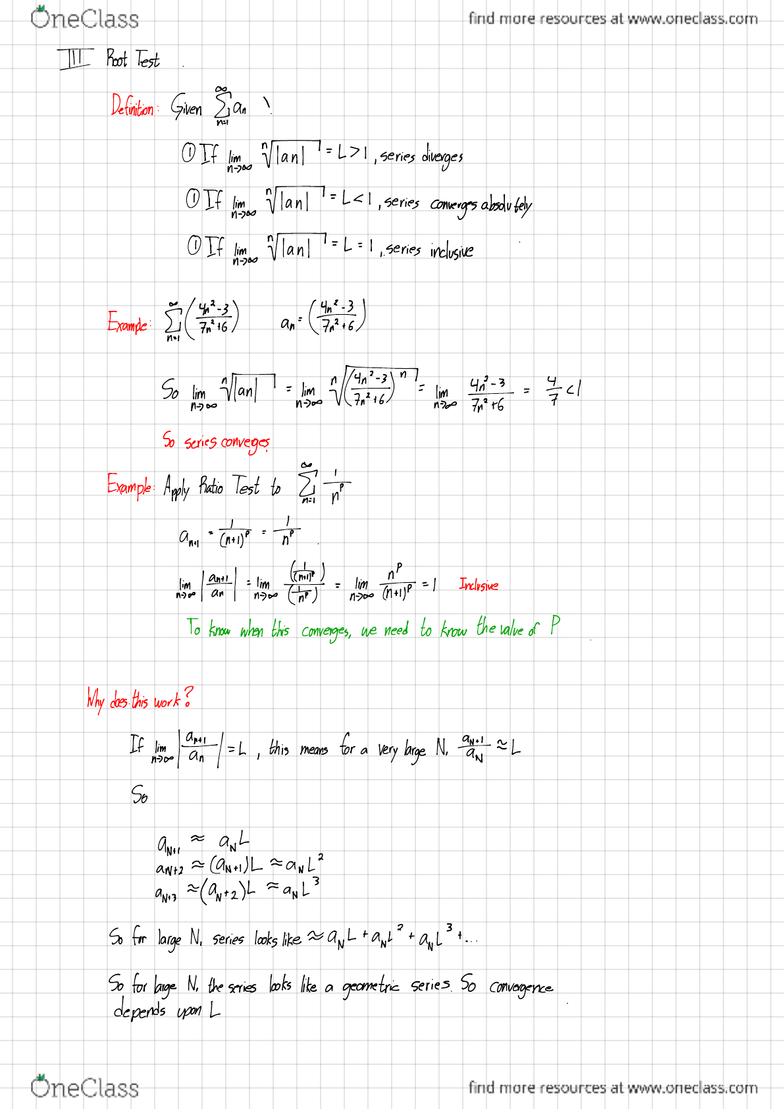 OneClass find more resources at www.oneclass.com
III Root Test
Definition: Given ∑_{n=1}^{∞} a_n
① If lim_{n→∞} ⁿ√|a_n| = L > 1, series diverges
① If lim_{n→∞} ⁿ√|a_n| = L < 1, series converges absolutely
① If lim_{n→∞} ⁿ√|a_n| = L = 1, series inclusive
Example: ∑_{n=1}^{∞} ((4n²-3)/(7n²+6)) a_n = ((4n²-3)/(7n²+6))
So lim_{n→∞} ⁿ√|a_n| = lim_{n→∞} ⁿ√((4n²-3)/(7n²+6))^n = lim_{n→∞} (4n²-3)/(7n²+6) = 4/7 < 1
So series converges
Example: Apply Ratio Test to ∑_{n=1}^{∞} 1/n^p
a_{n+1} = 1/(n+1)^p = 1/n^p
lim_{n→∞} |a_{n+1}/a_n| = lim_{n→∞} (1/(n+1)^p)/(1/n^p) = lim_{n→∞} n^p/(n+1)^p = 1 Inclusive
To know when this converges, we need to know the value of P
Why does this work?
If lim_{n→∞} |a_{n+1}/a_n| = L, this means for a very large N, a_{N+1}/a_N ≈ L
So
a_{N+1} ≈ a_N L
a_{N+2} ≈ (a_{N+1})L ≈ a_N L²
a_{N+3} ≈ (a_{N+2})L ≈ a_N L³
So for large N, series looks like ≈ a_N L + a_N L² + a_N L³ + ...
So for large N, the series looks like a geometric series. So convergence
depends upon L
OneClass find more resources at www.oneclass.com